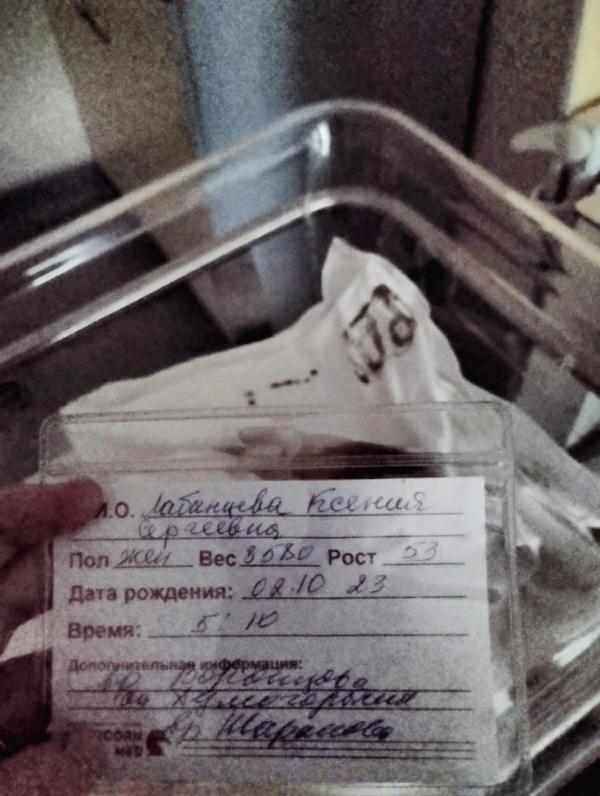 И.О. Лабынцева Ксения
Сергеевна
Пол жен Вес 3580 Рост 53
Дата рождения: 02.10 23
Время: 5:10
Дополнительная информация:
Воронцова
вр Шарапова
MED